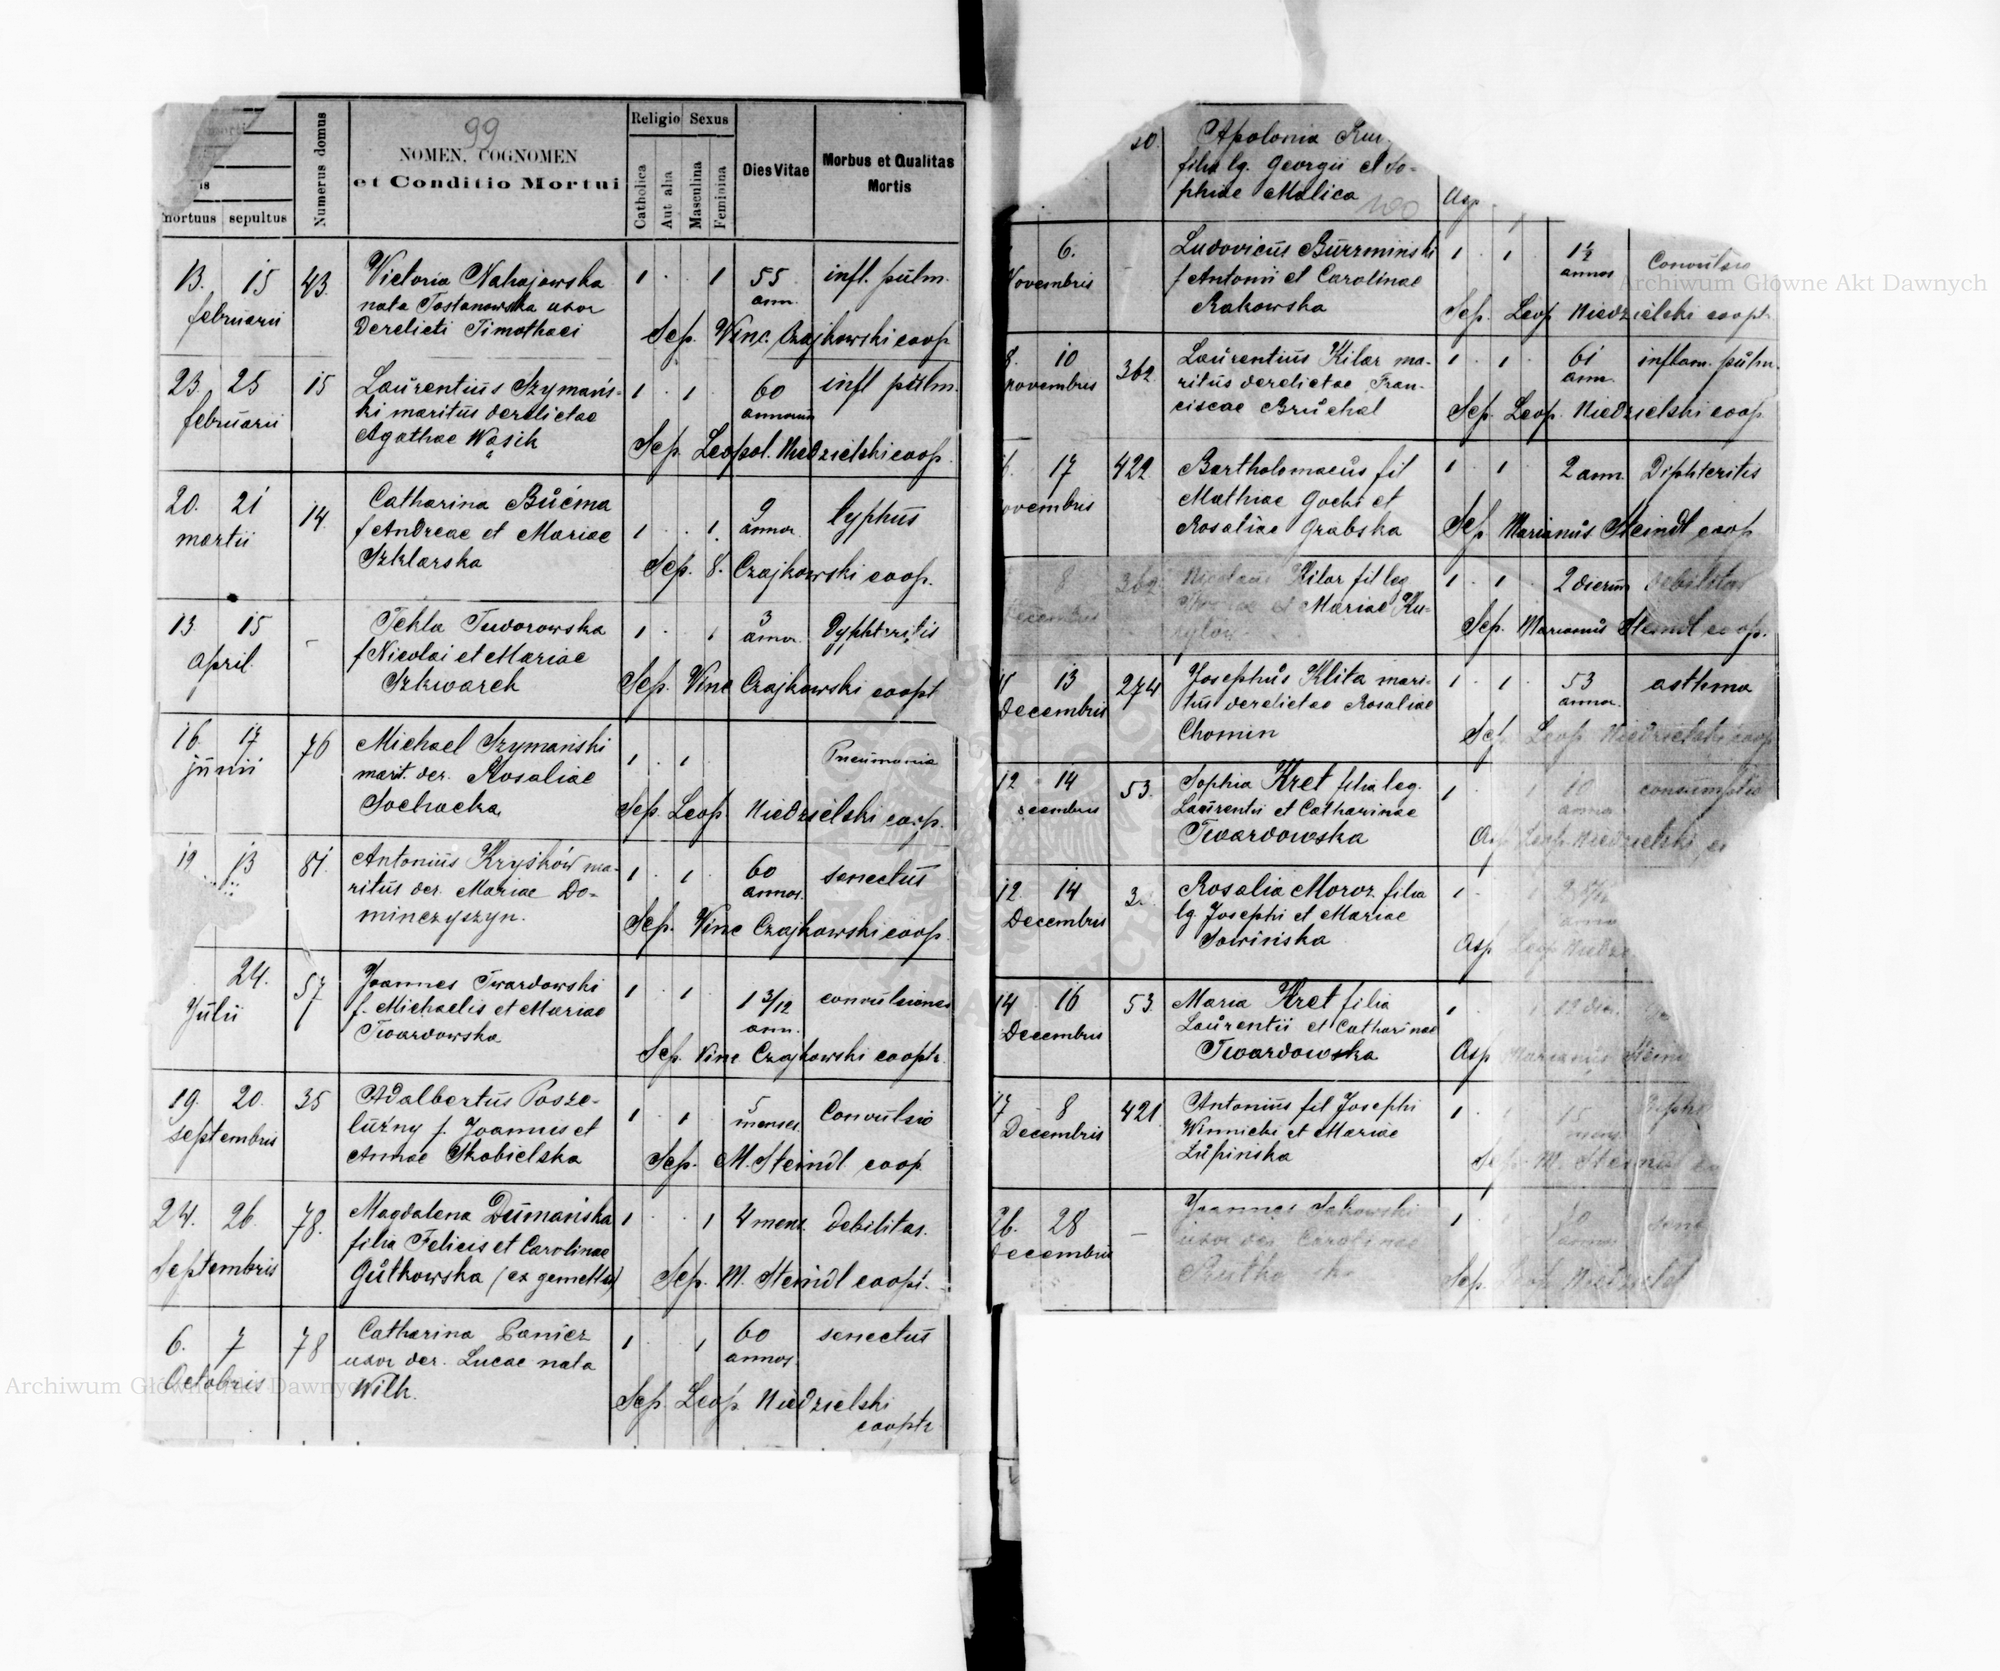 99
Numerus domus
NOMEN, COGNOMEN
et Conditio Mortui
Religio Sexus
Catholica
Aut alia
Masculina
Feminina
Dies Vitae
Morbus et Qualitas
Mortis
mortuus sepultus
13. 15 43 Victoria Nahajowska 1 . . 1 55 infl. pulm.
februarii nata Tostanowska uxor ann.
derelicti Timothaei Sep. Winc. Czajkowski coop
23. 25 15 Laurentius Szymańs- 1 . 1 60 infl pulm.
februarii ki maritus derelictae annorum
Agathae Wąsik Sep. Leopol. Niedzielski coop.
20. 21 14. Catharina Bućma 9 typhus
martii f Andreae et Mariae 1 . . 1. annor.
Szklarska Sep. 8. Czajkowski coop.
13 15 – Tekla Tworowska 1 . 1 3 Dyphteritis
april. f Nicolai et Mariae annor.
Szkwarek Sep. Vinc Czajkowski coopt
16. 17 76 Michael Szymański 1 . 1 Pneumonia
junii marit. der. Rosaliae
Sochacka Sep. Leop. Niedzielski coop.
19 13 81. Antonius Kryśków ma- 1 . 1 60 senectus
ritus der. Mariae Do- annor.
minczyszyn. Sep. Vinc Czajkowski coop
24. 57 Joannes Twardowski 1 . 1 1 3/12 convulsiones
Julii f. Michaelis et Mariae ann.
Twardowska Sep. Vinc Czajkowski cooptr.
19. 20. 35 Adalbertus Posze- 1 . 1 5 Convulsio
septembris luzny f. Joannis et menses.
Annae Skobielska Sep. M. Steindl coop
24. 26. 78. Magdalena Dumańska 1 . . 1 4 mens. debilitas.
Septembris filia Felicis et Carolinae
Gutkowska (ex gemellis) Sep. M. Steindl coopt.
6. 7 78 Catharina Panicz 1 . 1 60 senectus
Octobris uxor der. Lucae nata annor.
Wilk. Sep. Leop. Niedzielski
cooptr
Apolonia
filia lg. Georgii et So-
phiae Malica Asp
100
6. Ludovicus Burzminski 1 . 1 . 1½ Convulsio
Novembris f Antonii et Carolinae annor
Rakowska Sep. Leop Niedzielski coopt.
8. 10 362. Laurentius Kilar ma- 1 . 1 . 61 inflam. pulm.
novembris ritus derelictae Fran- ann.
ciscae Bruchal Sep. Leop. Niedzielski coop
17 422. Bartholomaeus fil 1 . 1 2 ann. Diphteritis
ovembris Mathiae Gocki et
Rosaliae Grabska Sep Marianus Steindl coop
8 362 Nicolaus Kilar fil leg 1 . 1 2 dierum debilitas
decembris et Mariae Ku-
rylow Sep. Marianus Steindl coop.
11 13 274 Josephus Klita mari- 1 . 1 . 53 asthma
decembris tus derelictae Rosaliae annor.
Chomin Sep. Leop. Niedzielski coop
12 14 53. Sophia Kret filia leg. 1 1 10 consumptio
ecembris Laurentii et Catharinae annor
Twardowska Asp Leop. Niedzielski
12. 14 Rosalia Moroz filia 1 . 1
Decembris lg. Josephi et Mariae annor
Sowińska Asp Leop
14 16 53. Maria Kret filia 1 12 dier.
Decembris Laurentii et Catharinae
Twardowska Asp Marianus Stein
17 8 421. Antonius fil Josephi 1 . 1 15
Decembris Winnicki et Mariae mens.
Lupinska Sep M. Steindl
26. 28 – Joannes Sakowski 1 . 1
decembris uxor der. Carolinae annor
Sep. Leop. Niedziel
Archiwum Główne Akt Dawnych
Archiwum Główne Akt Dawnych